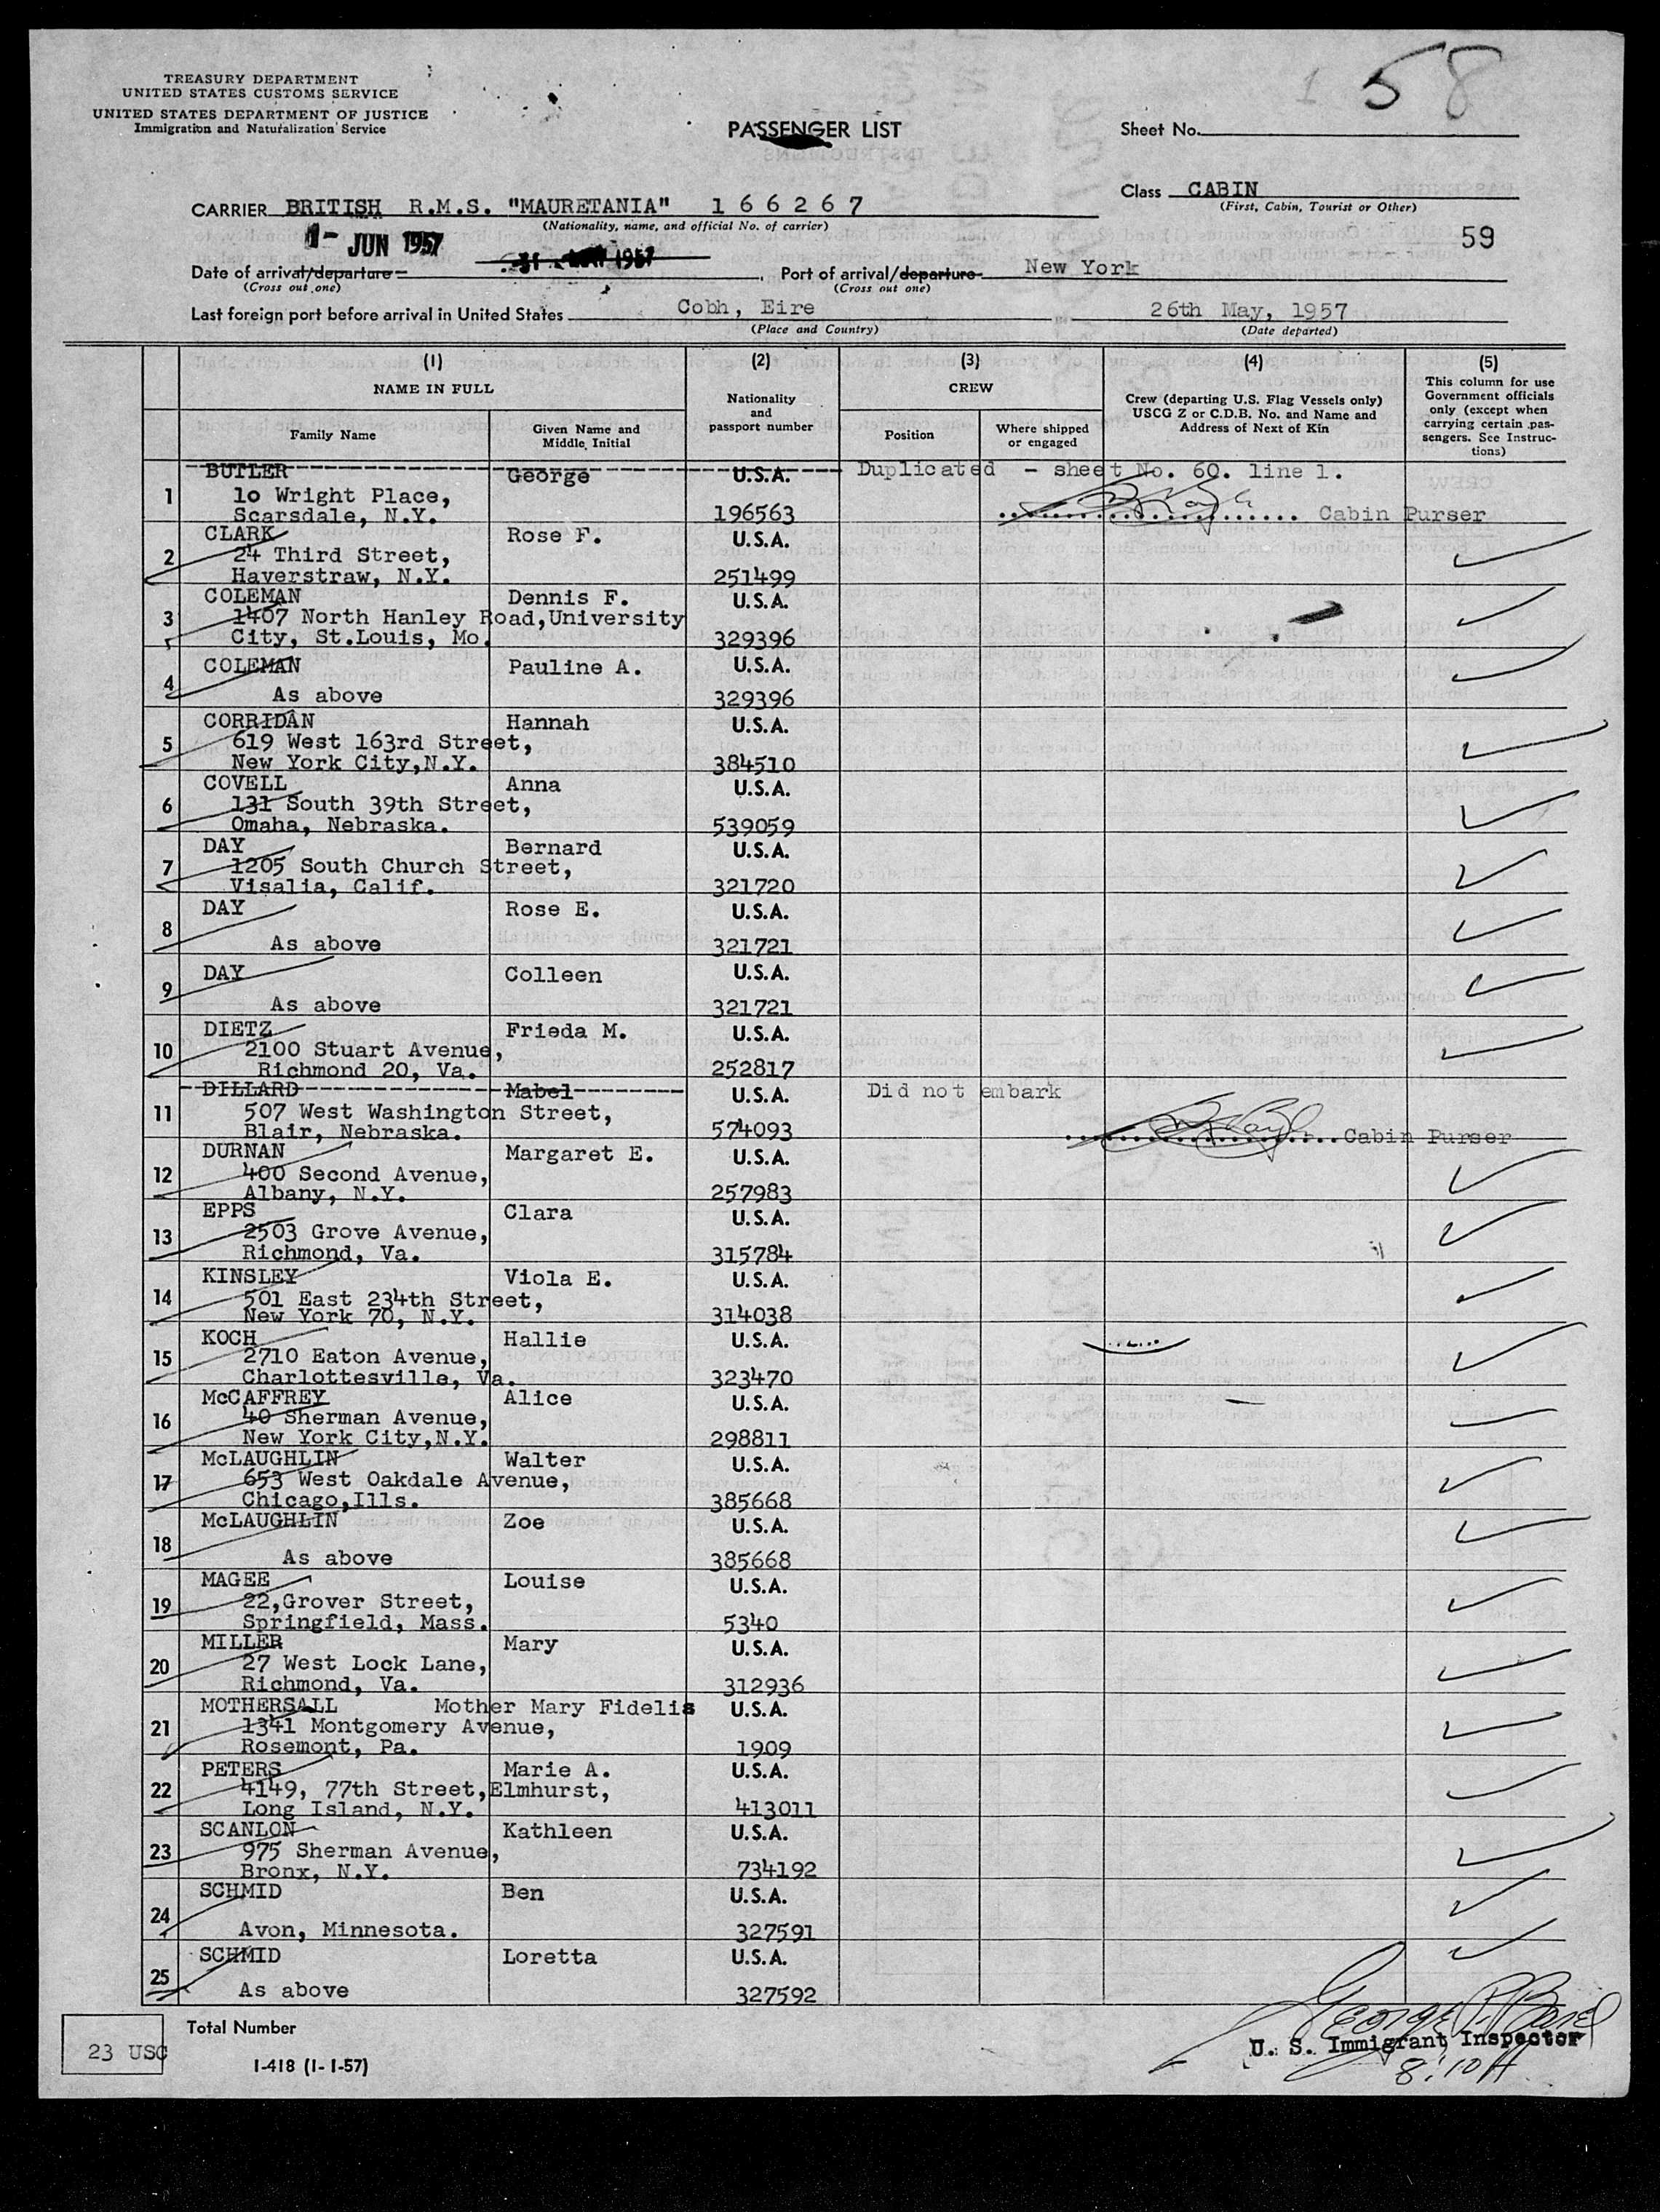 1 58
TREASURY DEPARTMENT
UNITED STATES CUSTOMS SERVICE
UNITED STATES DEPARTMENT OF JUSTICE
Immigration and Naturalization Service
PASSENGER LIST
Sheet No.
Class CABIN
(First, Cabin, Tourist or Other)
CARRIER BRITISH R.M.S. "MAURETANIA" 1 6 6 2 6 7
(Nationality, name, and official No. of carrier)
59
1- JUN 1957
31 1957
Date of arrival/departure
(Cross out one)
Port of arrival/departure New York
(Cross out one)
Last foreign port before arrival in United States Cobh, Eire 26th May, 1957
(Place and Country) (Date departed)
(1) (2) (3) (4) (5)
NAME IN FULL
Family Name
Given Name and Middle Initial
Nationality and passport number
CREW
Position
Where shipped or engaged
Crew (departing U.S. Flag Vessels only) USCG Z or C.D.B. No. and Name and Address of Next of Kin
This column for use Government officials only (except when carrying certain pas-sengers. See Instruc-tions)
1 BUTLER George U.S.A. Duplicated - sheet No. 60. line 1.
10 Wright Place,
Scarsdale, N.Y. 196563 Cabin Purser
2 CLARK Rose F. U.S.A.
24 Third Street,
Haverstraw, N.Y. 251499
3 COLEMAN Dennis F. U.S.A.
1407 North Hanley Road,University
City, St.Louis, Mo. 329396
4 COLEMAN Pauline A. U.S.A.
As above 329396
5 CORRIDAN Hannah U.S.A.
619 West 163rd Street,
New York City,N.Y. 384510
6 COVELL Anna U.S.A.
131 South 39th Street,
Omaha, Nebraska. 539059
7 DAY Bernard U.S.A.
1205 South Church Street,
Visalia, Calif. 321720
8 DAY Rose E. U.S.A.
As above 321721
9 DAY Colleen U.S.A.
As above 321721
10 DIETZ Frieda M. U.S.A.
2100 Stuart Avenue,
Richmond 20, Va. 252817
11 DILLARD Mabel U.S.A. Did not embark
507 West Washington Street,
Blair, Nebraska. 574093 Cabin Purser
12 DURNAN Margaret E. U.S.A.
400 Second Avenue,
Albany, N.Y. 257983
13 EPPS Clara U.S.A.
2503 Grove Avenue,
Richmond, Va. 315784
14 KINSLEY Viola E. U.S.A.
501 East 234th Street,
New York 70, N.Y. 314038
15 KOCH Hallie U.S.A.
2710 Eaton Avenue,
Charlottesville, Va. 323470
16 McCAFFREY Alice U.S.A.
40 Sherman Avenue,
New York City,N.Y. 298811
17 McLAUGHLIN Walter U.S.A.
653 West Oakdale Avenue,
Chicago,Ills. 385668
18 McLAUGHLIN Zoe U.S.A.
As above 385668
19 MAGEE Louise U.S.A.
22,Grover Street,
Springfield, Mass. 5340
20 MILLER Mary U.S.A.
27 West Lock Lane,
Richmond, Va. 312936
21 MOTHERSALL Mother Mary Fidelis U.S.A.
1341 Montgomery Avenue,
Rosemont, Pa. 1909
22 PETERS Marie A. U.S.A.
4149, 77th Street,Elmhurst,
Long Island, N.Y. 413011
23 SCANLON Kathleen U.S.A.
975 Sherman Avenue,
Bronx, N.Y. 734192
24 SCHMID Ben U.S.A.
Avon, Minnesota. 327591
25 SCHMID Loretta U.S.A.
As above 327592
23 USC
Total Number
I-418 (1-1-57)
George
U. S. Immigrant Inspector
8:10A